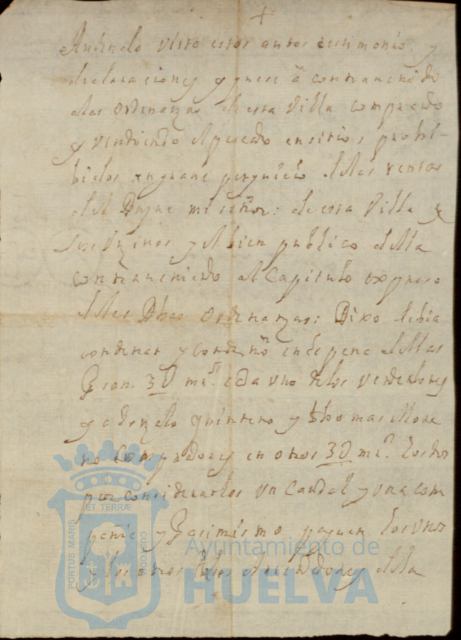 +
Aviendo visto estos autos testimonio, y
declaraciones y que se a contravenido
a las ordenanzas de esta Villa comprando
y vendiendo el pescado en sitios prohi-
bidos en grave perjuicio de las rentas
del Duque mi señor: de esta Villa y
sus vezinos y el bien publico della
contraveniendo al Capitulo expreso
de las Dhas ordenanzas: Dixo debia
condenar y condeno en la pena dellas
que son 30 mrs. cada uno de los vendedores
y a Gonzalo quintero y thomas
no compradores en otros 30 mrs. todos
por considerarlos un Caudal y una com-
pania y que asimismo paguen los unos
y los otros los della
PORTUS MARIS
ET TERRÆ
CUSTODIA
Ayuntamiento de
HUELVA